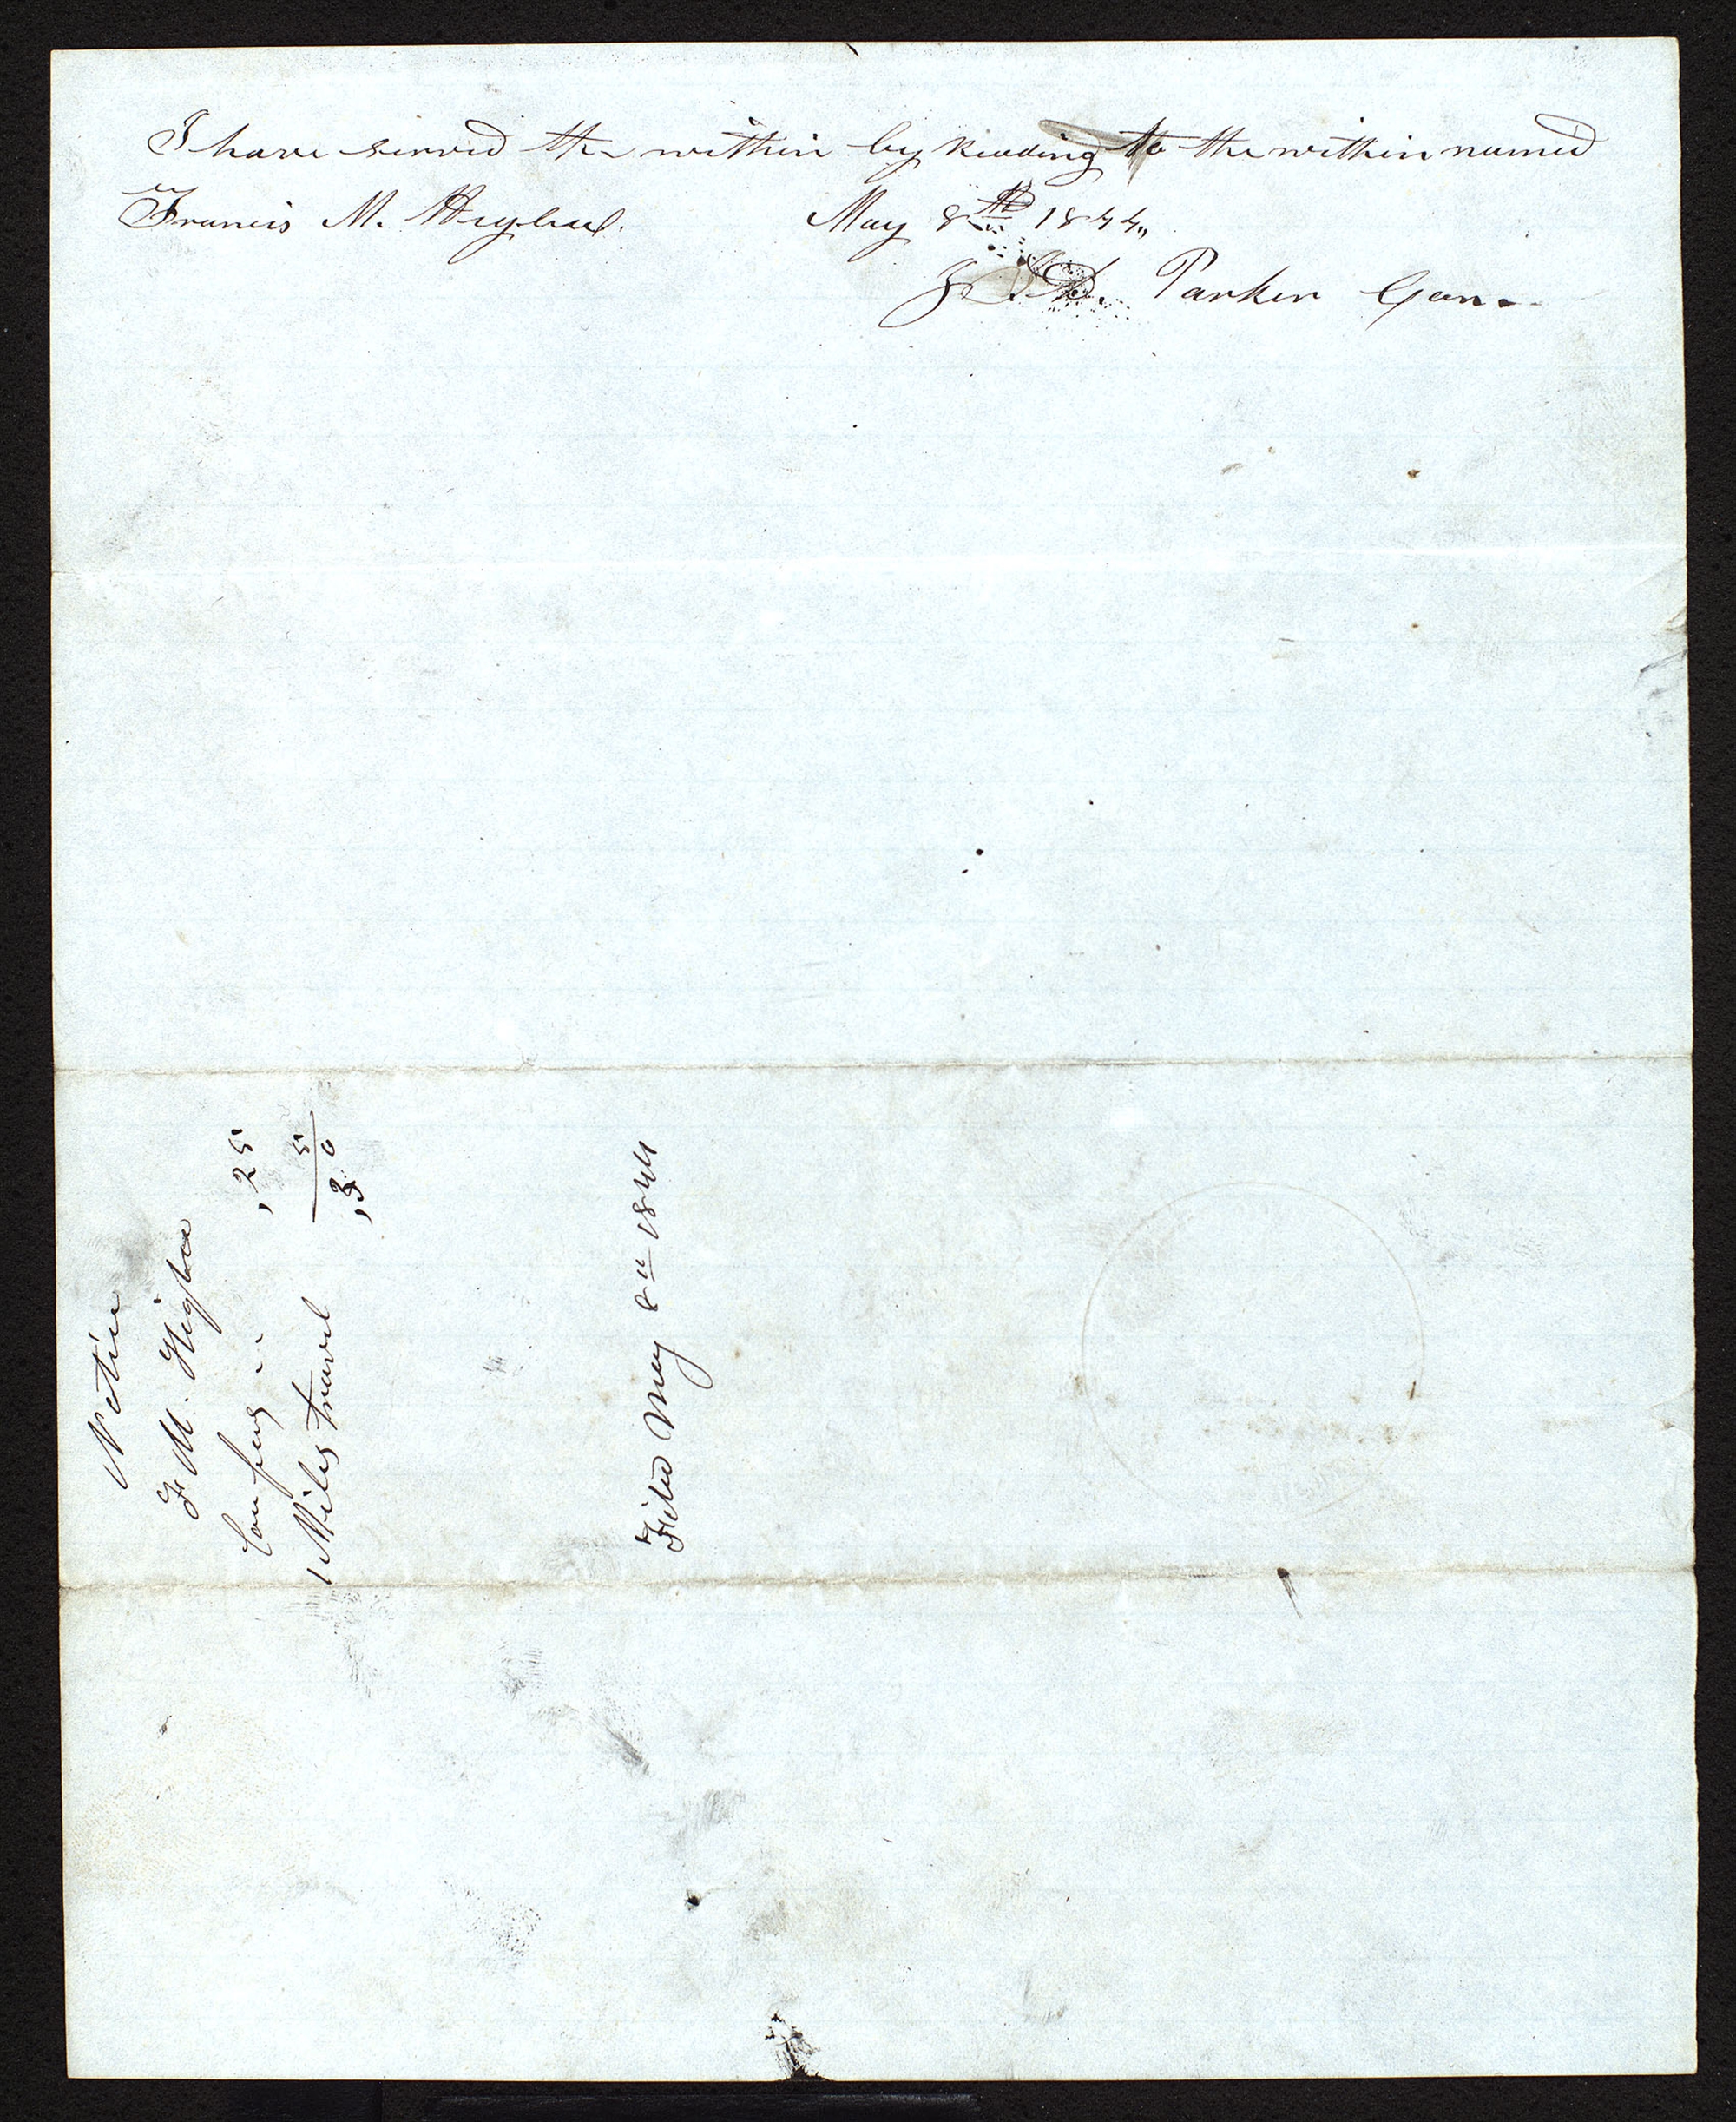 I have served the within by reading to the within named
Francis M. Higbee. May 8th 1844,,
J. D. Parker Con..
Notice
F M. Higbee
Con fees .. ,25
1 Miles travel 5
,30
Filed May 8" 1844